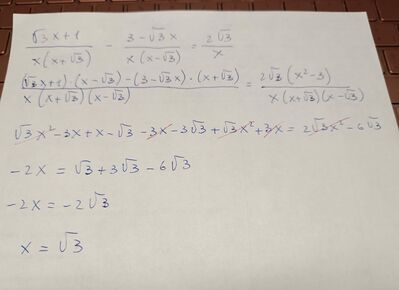 (√3x+1)/(x(x+√3)) - (3-√3x)/(x(x-√3)) = 2√3/x
((√3x+1)·(x-√3)-(3-√3x)·(x+√3))/(x(x+√3)(x-√3)) = 2√3(x²-3)/(x(x+√3)(x-√3))
√3x²-3x+x-√3-3x-3√3+√3x²+3x=2√3x²-6√3
-2x = √3+3√3-6√3
-2x = -2√3
x = √3